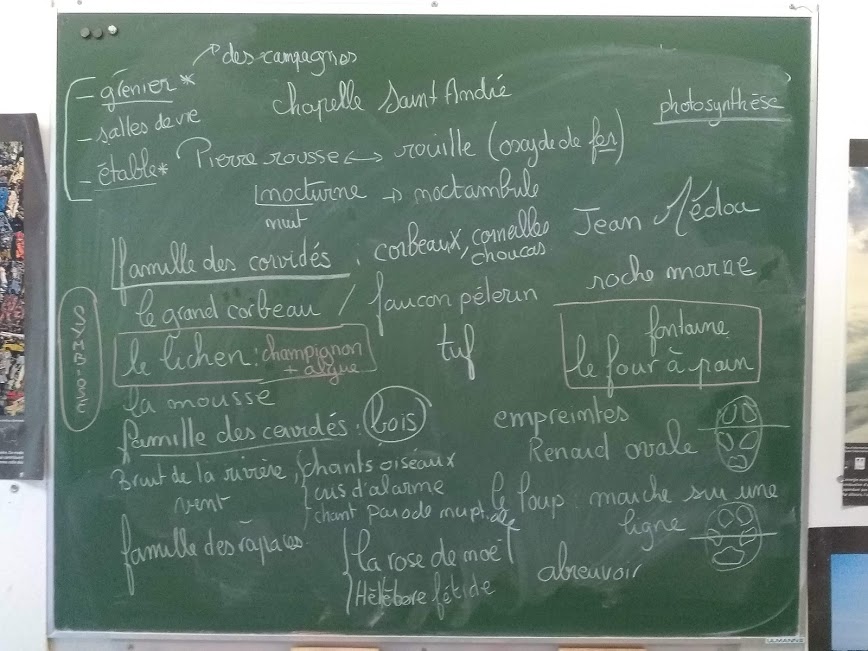 des campagnes
- grenier*
chapelle Saint André
photosynthèse
- salles de vie
- étable*
Pierre rousse ↔ rouille (oxyde de fer)
nocturne → noctambule
nuit
Jean Médou
famille des corvidés : corbeaux, corneilles
choucas
le grand corbeau / faucon pélerin
roche marne
SYMBIOSE
le lichen : champignon
+ algue
tuf
fontaine
le four à pain
la mousse
famille des cervidés : bois
empreintes
Renard ovale
Bruit de la rivière, chants oiseaux
vent
cris d'alarme
chant parade nuptiale
le loup : marche sur une
ligne
famille des rapaces
la rose de moël
Hélébore fétide
abreuvoir
ULMANN